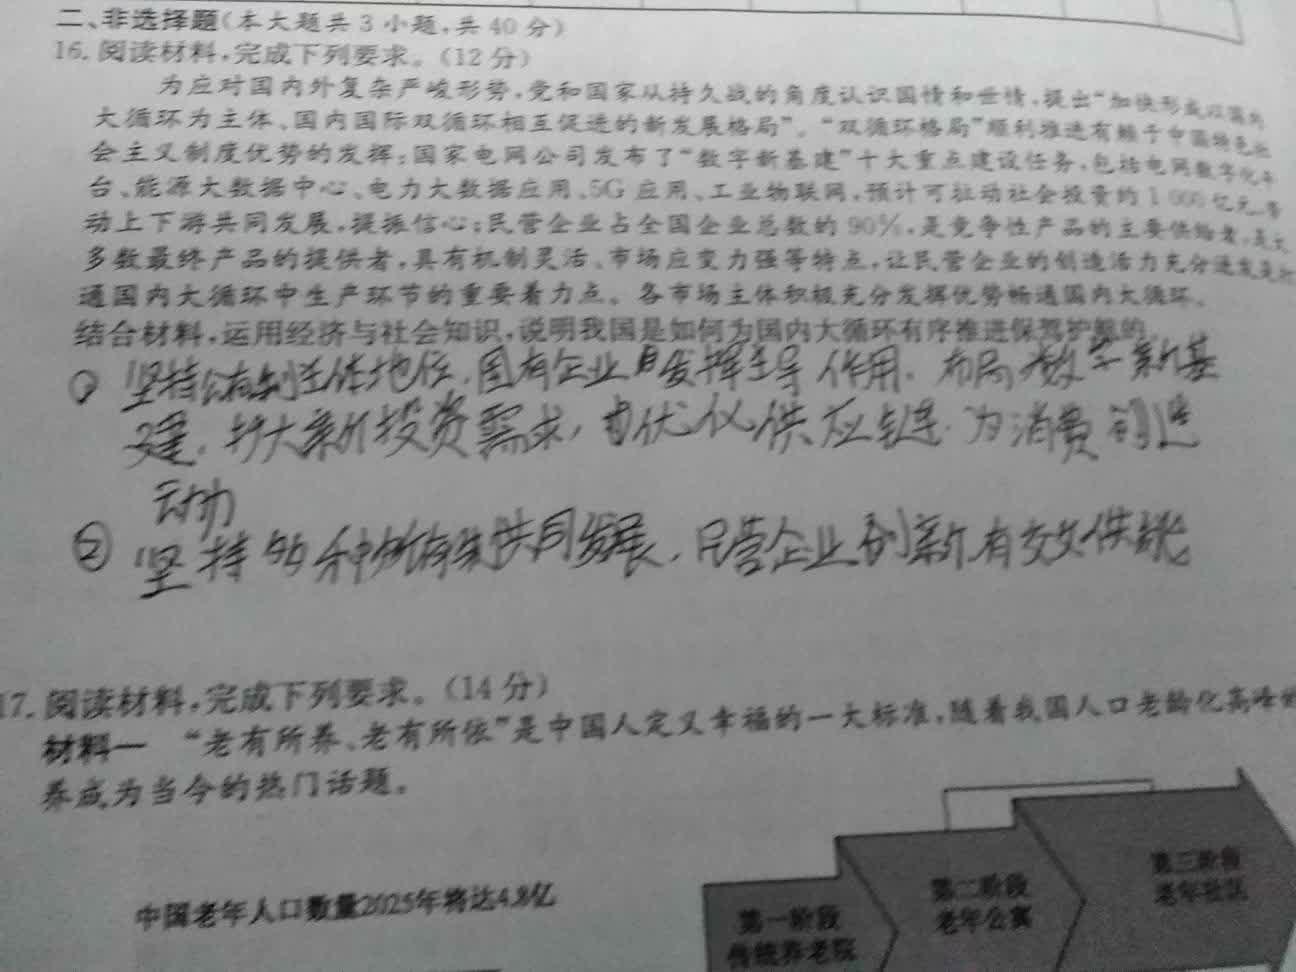 二、非选择题(本大题共3小题,共40分)
16. 阅读材料,完成下列要求。(12分)
为应对国内外复杂严峻形势,党和国家从持久战的角度认识国情和世情,提出“加快形成以国内
大循环为主体、国内国际双循环相互促进的新发展格局”。“双循环格局”顺利推进有赖于中国特色社
会主义制度优势的发挥;国家电网公司发布了“数字新基建”十大重点建设任务,包括电网数字化平
台、能源大数据中心、电力大数据应用、5G应用、工业物联网,预计可拉动社会投资约1 000亿元,带
动上下游共同发展,提振信心;民营企业占全国企业总数的90%,是竞争性产品的主要供给者,是大
多数最终产品的提供者,具有机制灵活、市场应变力强等特点,让民营企业的创造活力充分迸发是
通国内大循环中生产环节的重要着力点。各市场主体积极充分发挥优势畅通国内大循环。
结合材料,运用经济与社会知识,说明我国是如何为国内大循环有序推进保驾护航的。
① 坚持公有制主体地位,国有企业发挥主导作用.布局数字新基
建,扩大新投资需求,优化供应链.为消费创造
动力
② 坚持多种所有制共同发展,民营企业创新有效供给
17. 阅读材料,完成下列要求。(14分)
材料一 “老有所养、老有所依”是中国人定义幸福的一大标准,随着我国人口老龄化高峰
养成为当今的热门话题。
中国老年人口数量2025年将达4.8亿
第一阶段
传统养老院
第二阶段
老年公寓
第三阶段
老年社区